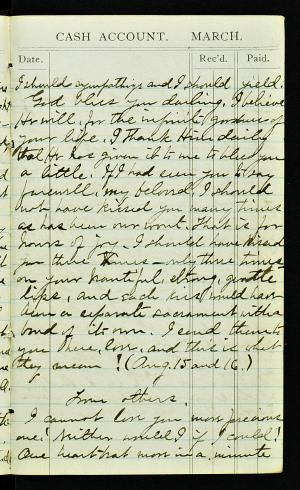 CASH ACCOUNT. MARCH.
Date. Rec'd. Paid.
I should sympathize and I should yield.
God bless you darling, I believe
He will, for the infinite goodness of
your life. I thank Him daily
that He has given it to me to bless you
a little. If I had seen you to say
farewell, my beloved, I should
not have kissed you many times
as has been our wont. That is for
hours of joy. I should have kissed
you three times – only three times –
on your beautiful, strong, gentle
lips, and each kiss would have
been a separate sacrament with a
bond of its own. I send them to
you here, love, and this is what
they mean! (Aug. 15 and 16.)
From others.
I cannot love you more, precious
one! Neither would I if I could!
One heart-beat more in a minute